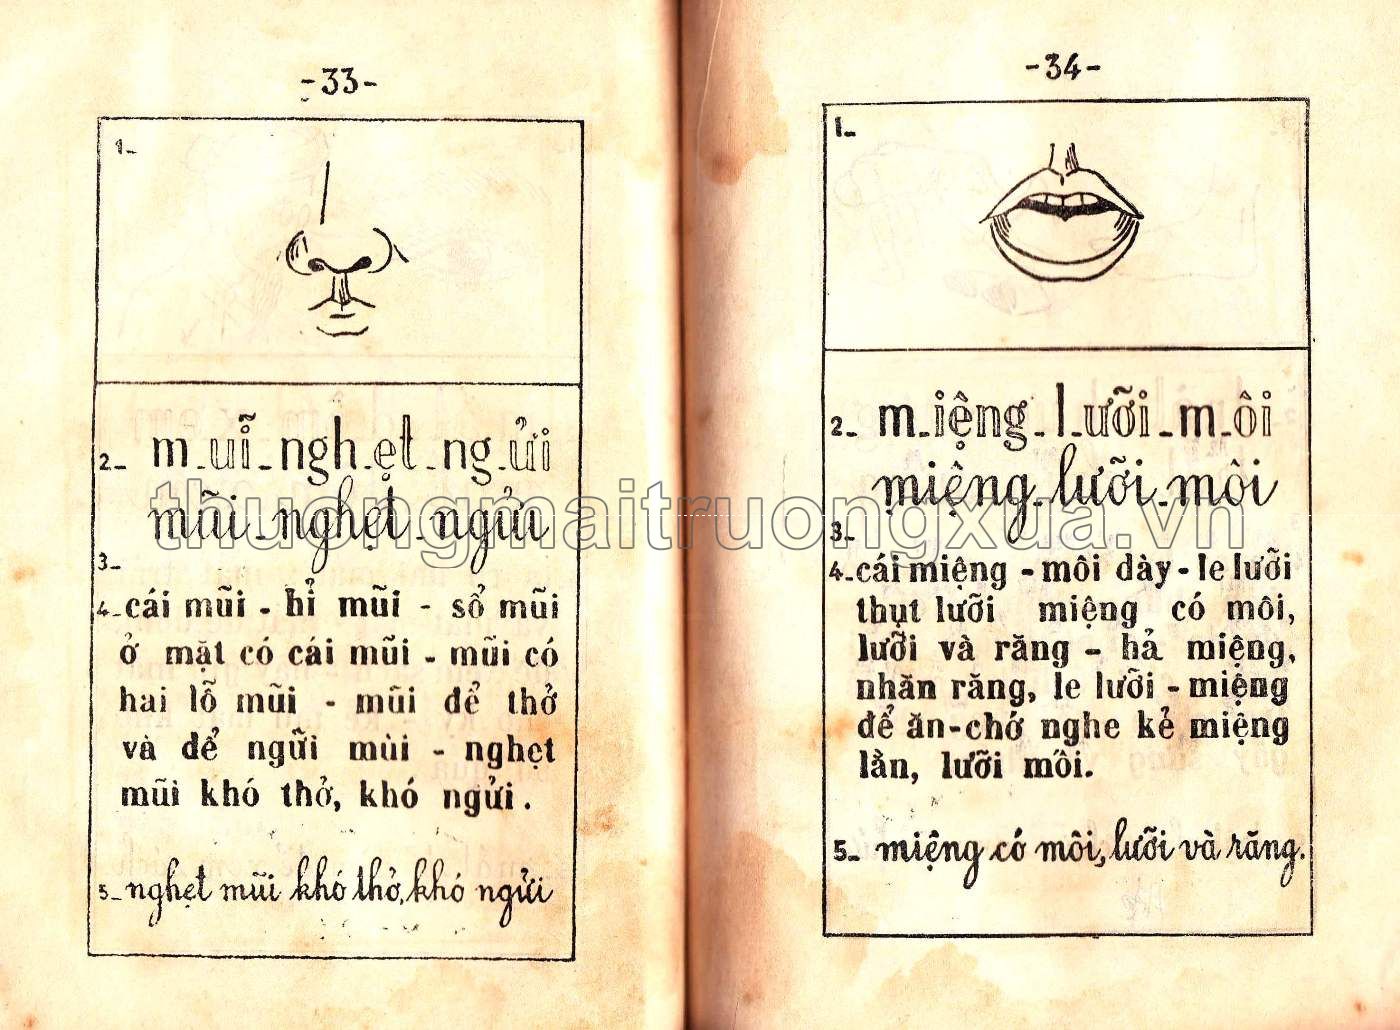 -33-
1-
2- m-uĩ-ngh-ẹt-ng-ửi
mũi-nghẹt-ngửi
3-
4-cái mũi - hỉ mũi - sổ mũi
ở mặt có cái mũi - mũi có
hai lỗ mũi - mũi để thở
và để ngữi mùi - nghẹt
mũi khó thở, khó ngửi.
5- nghẹt mũi khó thở, khó ngửi
-34-
1-
2- m-iệng-l-ưỡi-m-ôi
miệng-lưỡi-môi
3-
4-cái miệng - môi dày - le lưỡi
thụt lưỡi miệng có môi,
lưỡi và răng - hả miệng,
nhăn răng, le lưỡi - miệng
để ăn-chớ nghe kẻ miệng
lằn, lưỡi mối.
5- miệng có môi, lưỡi và răng.
thuongmaitruongxua.vn